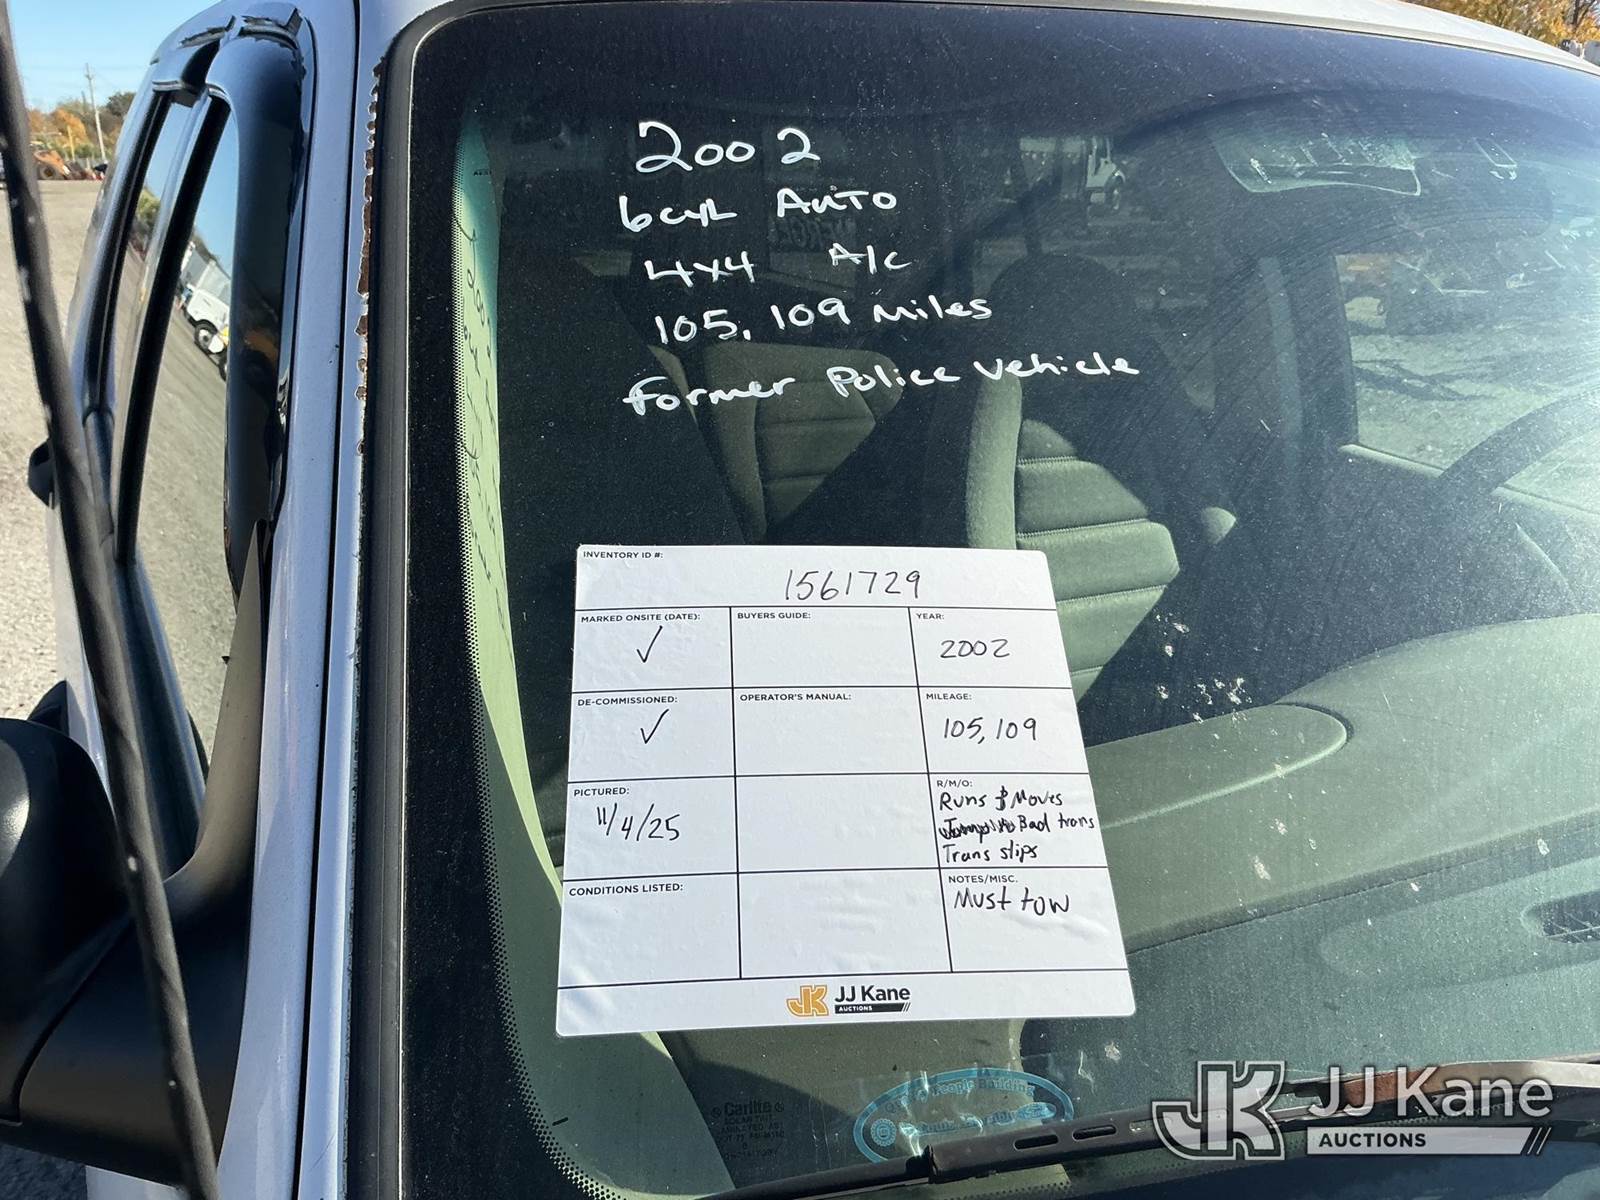 2002
6cyl Auto
4x4 A/C
105,109 Miles
Former Police Vehicle
INVENTORY ID #:
1561729
MARKED ONSITE (DATE): ✓
BUYERS GUIDE:
YEAR:
2002
DE-COMMISSIONED: ✓
OPERATOR'S MANUAL:
MILEAGE:
105,109
PICTURED:
11/4/25
R/M/O:
Runs & Moves
Bad trans
Trans slips
CONDITIONS LISTED:
NOTES/MISC.
Must tow
JK JJ Kane
AUCTIONS
Carlite
People Building
JK JJ Kane
AUCTIONS